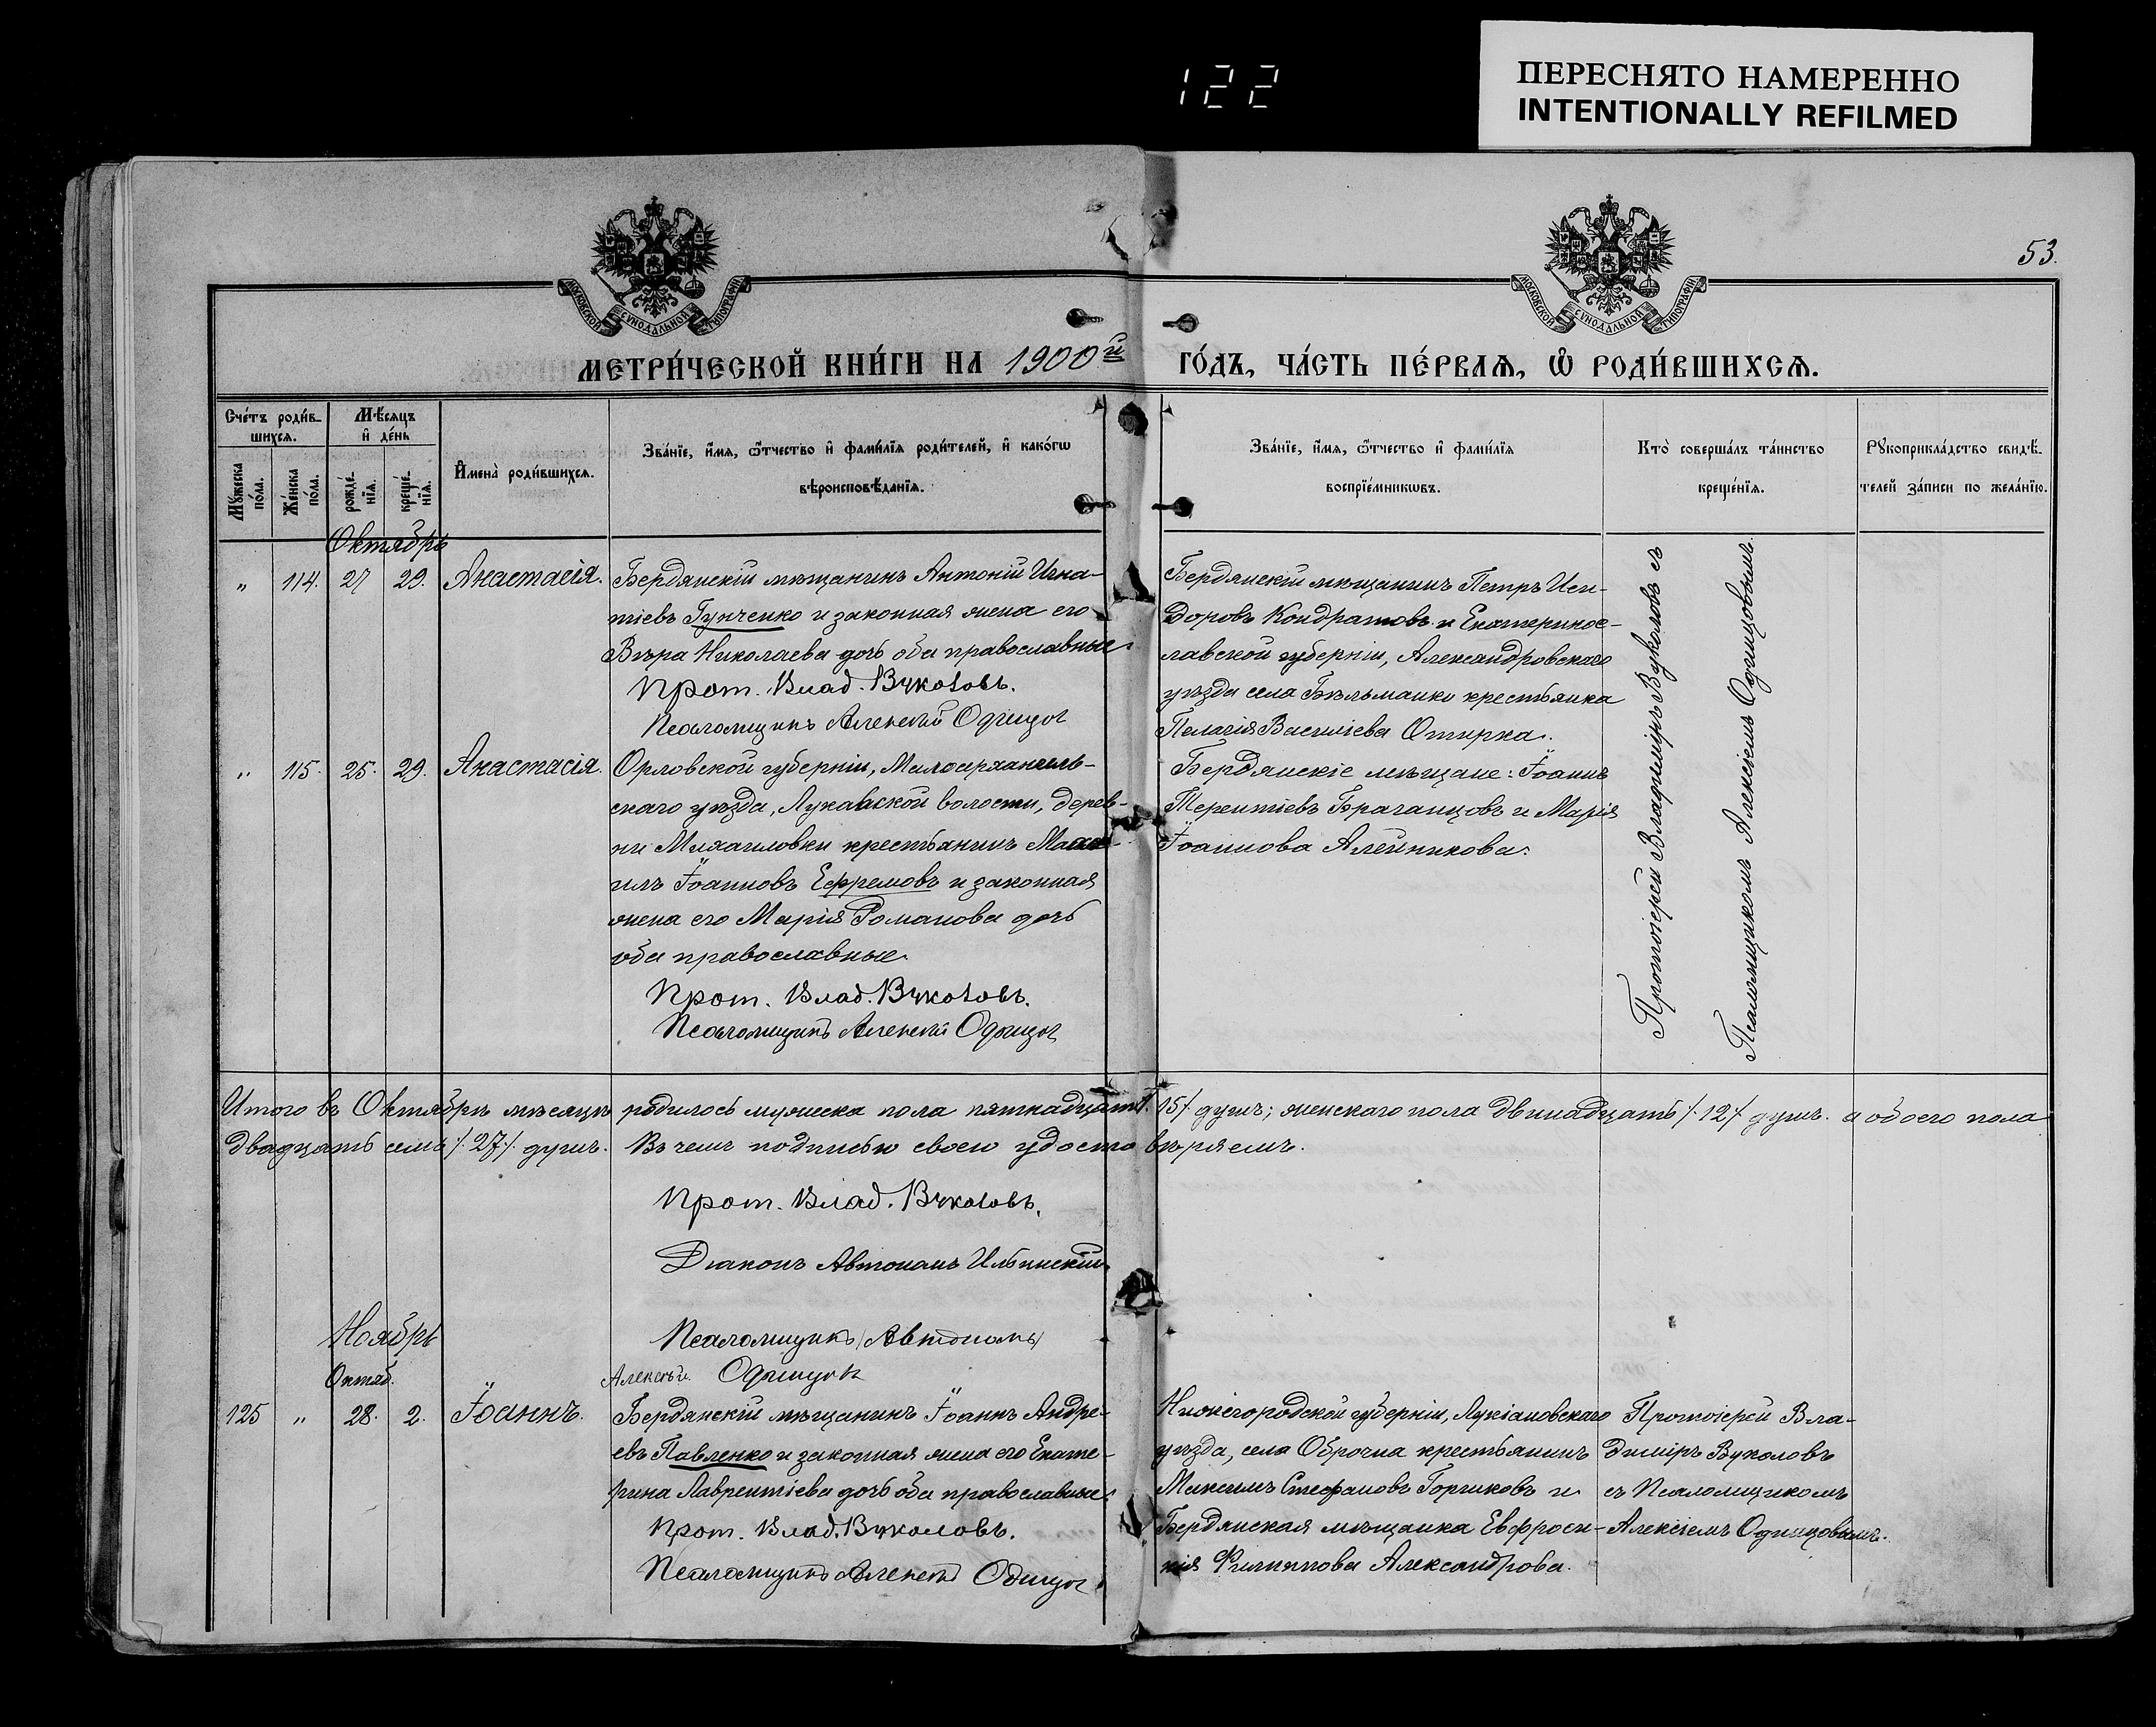 122
ПЕРЕСНЯТО НАМЕРЕННО
INTENTIONALLY REFILMED
53.
МОСКОВСКОЙ СѴНОДАЛЬНОЙ ТИПОГРАФІИ
МОСКОВСКОЙ СѴНОДАЛЬНОЙ ТИПОГРАФІИ
МЕТРИ́ЧЕСКОЙ КНИ́ГИ НА 1900й ГО́ДЪ, ЧА́СТЬ ПЕ́РВАѦ, Ѽ РОДИ́ВШИХСѦ.
Сче́тъ роди́вшихсѧ.
Мꙋ́жеска по́ла.
Же́нска по́ла.
Мѣ́сяцъ и҆ де́нь
рожде́нїѧ.
креще́нїѧ.
И҆мена̀ роди́вшихсѧ.
Зва́нїе, и҆́мѧ, ѻ҆́тчество и҆ фами́лїѧ роди́телей, и҆ како́гѡ
вѣроисповѣ́данїѧ.
Зва́нїе, и҆́мѧ, ѻ҆́тчество и҆ фами́лїѧ
воспрїе́мникѡвъ.
Кто̀ соверша́лъ та́инство
креще́нїѧ.
Рꙋкоприкла́дство свидѣ́телей за́писи по жела́нїю.
Октябрь
„ 114. 27 29. Анастасія.
Бердянскій мѣщанинъ Антоній Игна-
тіевъ Гунченко и законная жена его
Вѣра Николаева дочь оба православные
Прот. Влад. Вуколовъ.
Псаломщикъ Алексѣй Одинцов
Бердянскій мѣщанинъ Петръ Иси-
доровъ Кондратовъ и Екатеринос-
лавской губерніи, Александровскаго
уѣзда села Бѣльманки крестьянка
Пелагія Василіева Отирка.
Протоіерей Владиміръ Вуколовъ съ
Псаломщикомъ Алексіемъ Одинцовымъ.
„ 115. 25. 29. Анастасія.
Орловской губерніи, Малоархангель-
скаго уѣзда, Лукавской волости, дерев-
ни Михайловки крестьянинъ
илъ Іоанновъ Ефремовъ и законная
жена его Марія Романова дочь
оба православные.
Прот. Влад. Вуколовъ.
Псаломщикъ Алексѣй Одинцов
Бердянскіе мѣщане: Іоаннъ
Терентіевъ Браганцовъ и Марія
Іоаннова Алейникова.
Итого въ Октябрѣ мѣсяцѣ родилось мужеска пола пятнадцать /. 15 /. душъ; женскаго пола двѣнадцать /. 12 /. душъ. а обоего пола
двадцать семь /. 27 /. душъ. Въ чемъ подписью своею удостовѣряемъ.
Прот. Влад. Вуколовъ.
Діаконъ Автономъ Ильинскій
Псаломщикъ (Автономъ)
Алексѣй Одинцов
Ноябрь
Октяб.
125 „ 28. 2. Іоаннъ.
Бердянскій мѣщанинъ Іоаннъ Андре-
евъ Павленко и законная жена его Екате-
рина Лаврентіева дочь оба православные.
Прот. Влад. Вуколовъ.
Псаломщикъ Алексѣй Одинцов
Нижегородской губерніи, Лукіановскаго
уѣзда, села Оброчна крестьянинъ
Максимъ Стефановъ Горшковъ и
Бердянская мѣщанка Евфроси-
нія Филиппова Александрова.
Протоіерей Вла-
диміръ Вуколовъ
съ Псаломщикомъ
Алексіемъ Одинцовымъ.